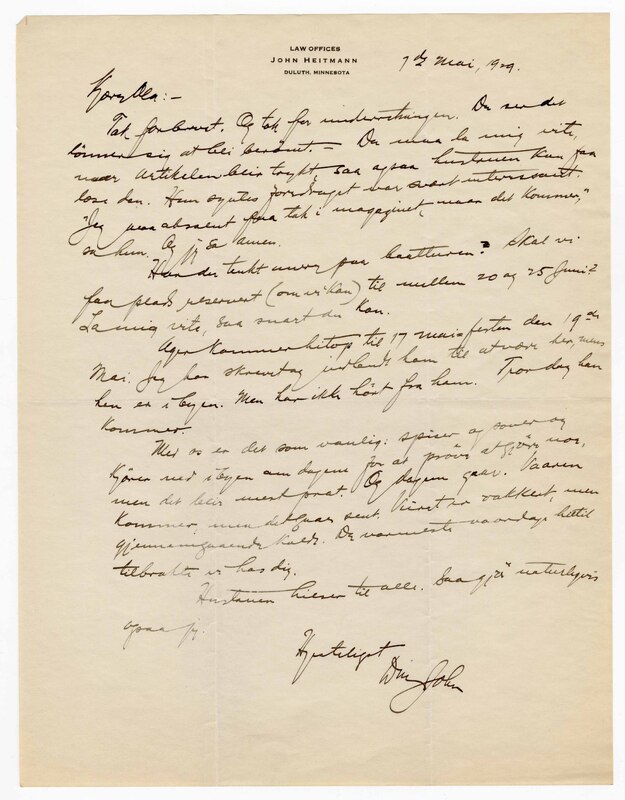 LAW OFFICES
JOHN HEITMANN
DULUTH, MINNESOTA
7de Mai, 1929.
Kjære Ola:-
Tak for brevet. Og tak for underretningen. Du ser det
lönner sig at bli berömt. - Du maa la mig vite,
naar artikelen blir trykt saa ogsaa hustruen kan faa
læse den. Hun syntes foredraget var svært interessant.
"Jeg maa absolut faa tak i magasinet, naar det kommer,"
sa hun. Og jeg sa amen.
Har du tænkt mere paa baatturen? Skal vi
faa plads reservert (om vi kan) til mellem 20 og 25 Juni?
La mig vite, saa snart du kan.
Ager kommer hitop til 17 mai-festen den 19de
Mai. Jeg har skrevet og indbudt ham til at være her, mens
han er i byen. Men har ikke hört fra ham. Tror dog han
kommer.
Med os er det som vanlig: spiser og sover og
kjörer ned i byen om dagene for at pröve at gjöre noe,
men det blir mest prat. Og dagene gaar. Vaaren
kommer, men det gaar sent. Veiret er vakkert, men
gjennemgaaende koldt. De varmeste vaardage hittil
tilbrakte vi hos dig.
Hustruen hilser til alle. Saa gjör naturligvis
ogsaa jeg.
Hjerteligst
Din John